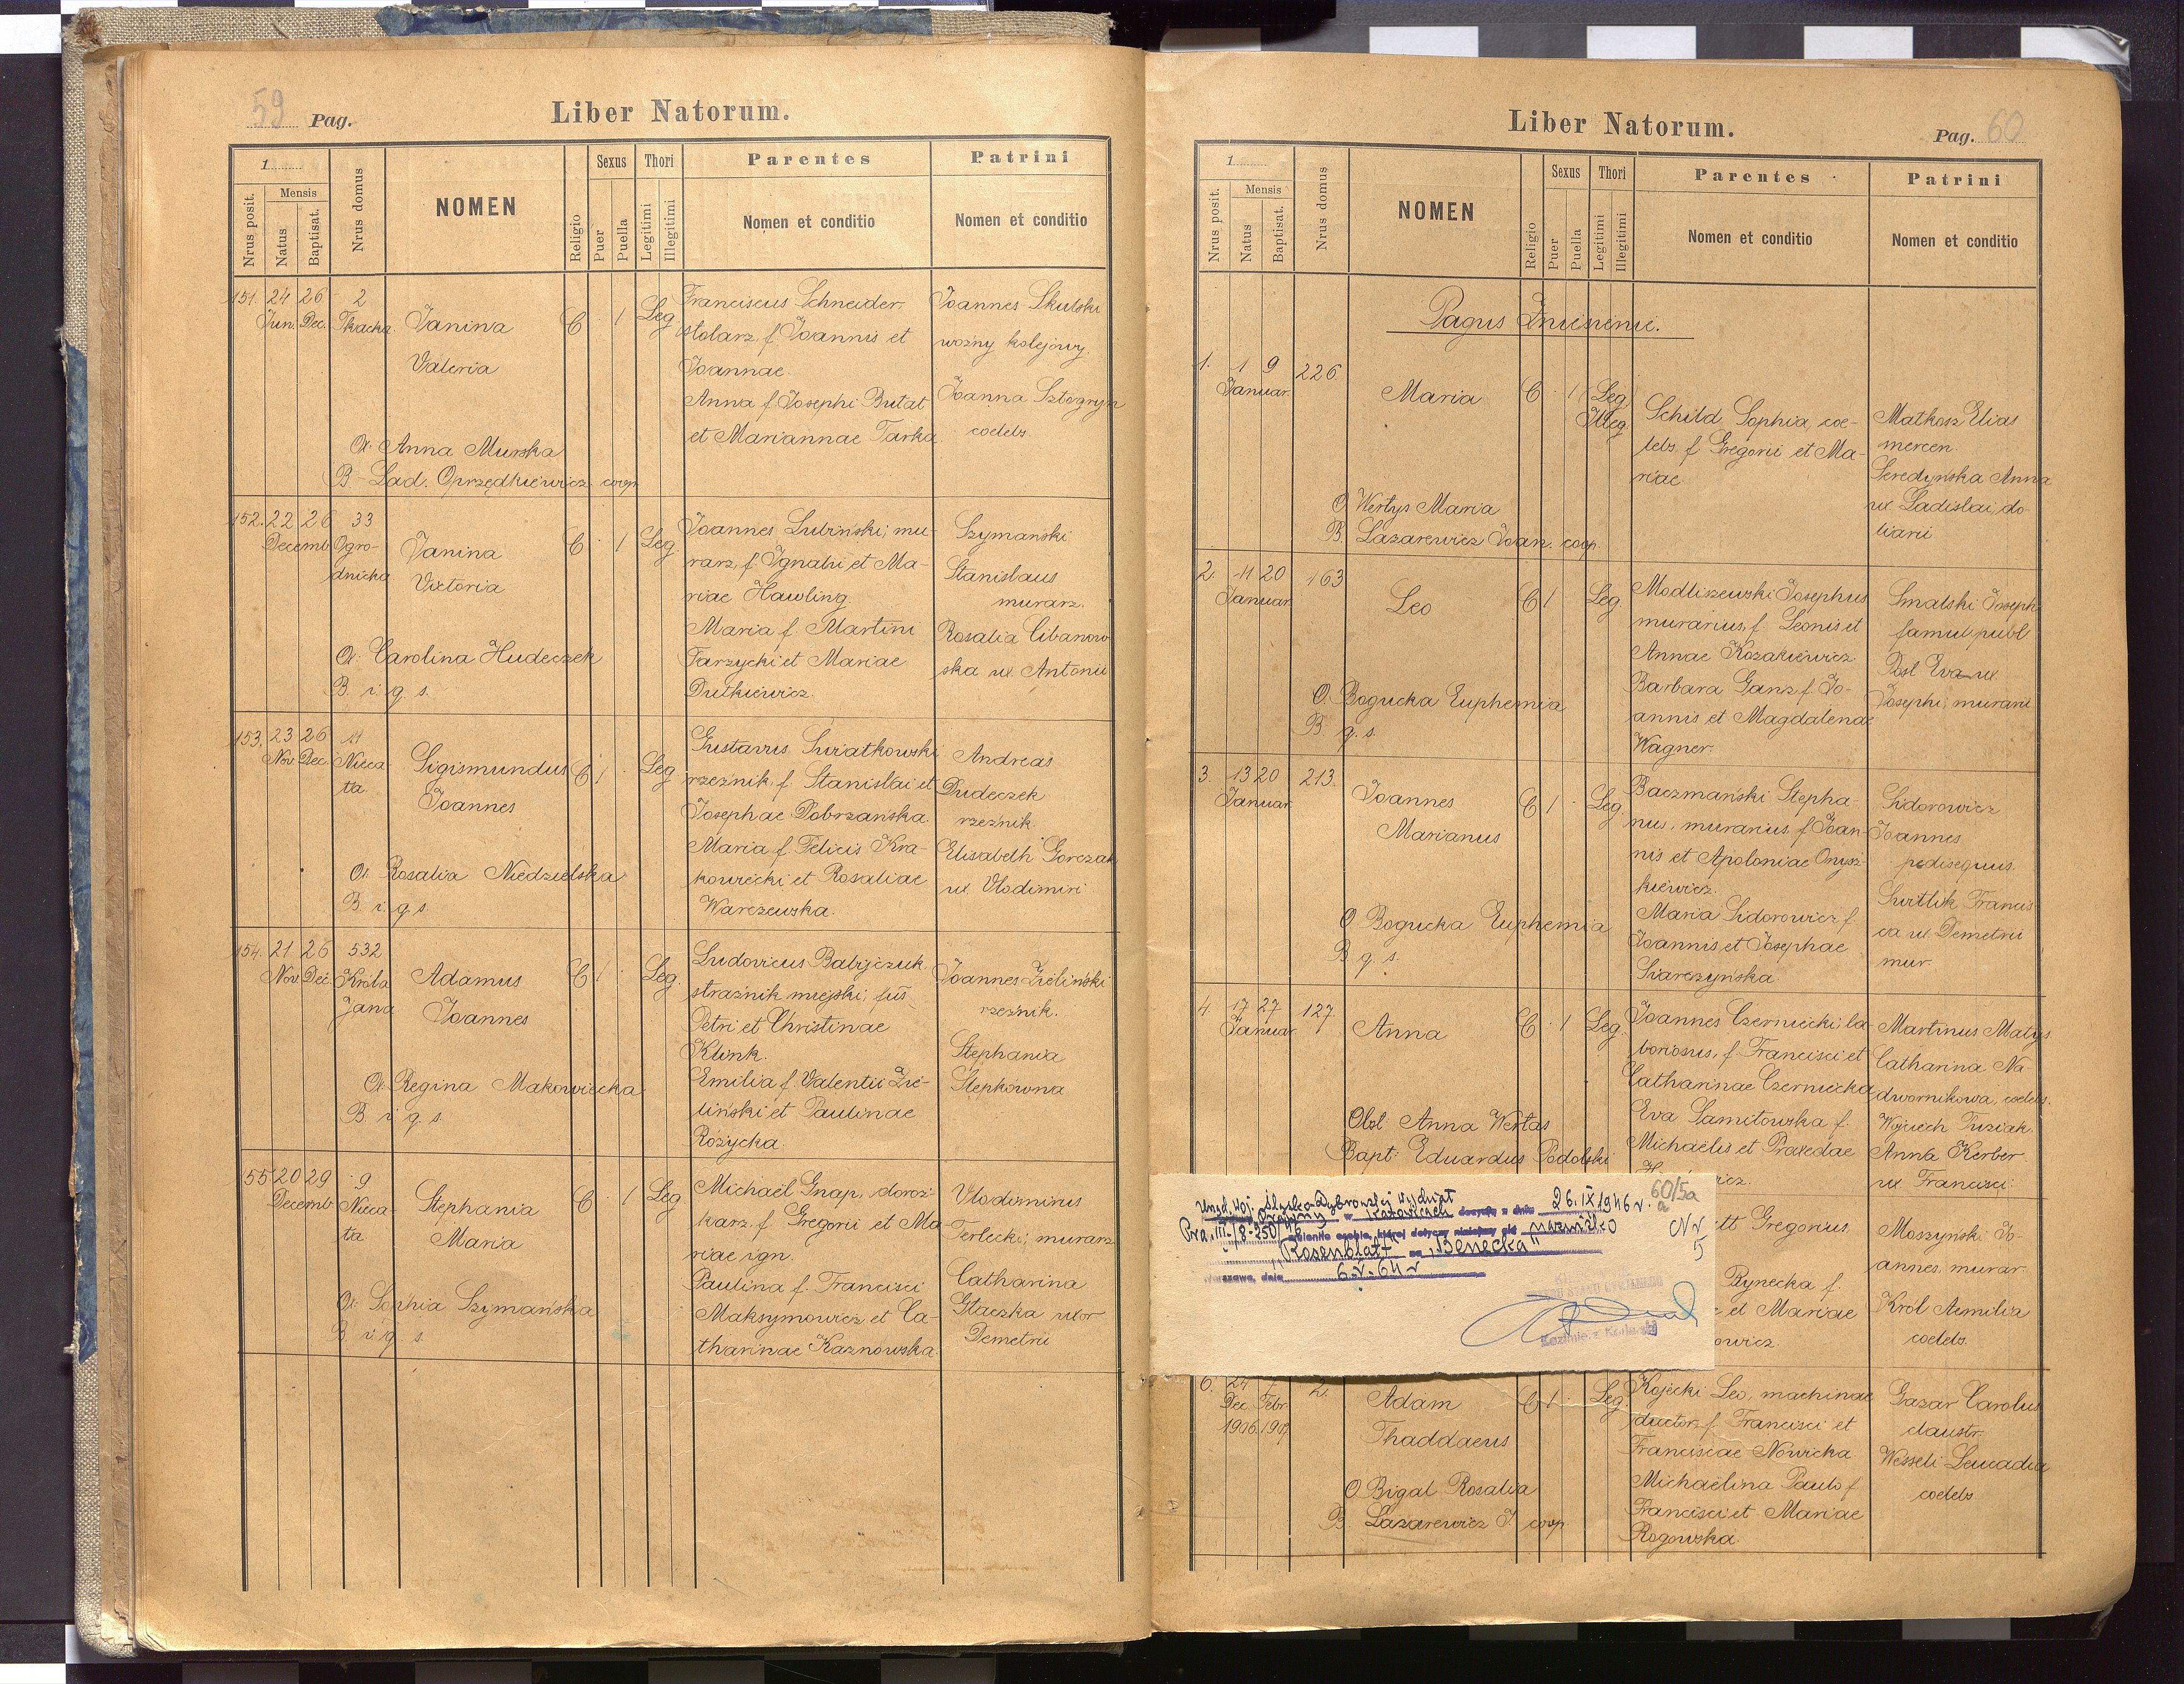 59 Pag.
Liber Natorum.
1
Nrus posit.
Mensis
Natus
Baptisat.
Nrus domus
NOMEN
Religio
Sexus
Puer
Puella
Thori
Legitimi
Illegitimi
Parentes
Nomen et conditio
Patrini
Nomen et conditio
151. 24 26 2
Jun. Dec. Tkacka.
Janina
Valeria
C 1 Leg
Franciscus Schneider,
stolarz, f. Joannis et
Joannae.
Anna f. Josephi Butat
et Mariannae Tarka
Joannes Skulski
woźny kolejowy.
Joanna
coelebs
O: Anna Murska
B Lad. Oprzędkiewicz coop.
152. 22 26 33
Decemb Ogro-
dnicka
Janina
Victoria
C 1 Leg
Joannes Lubiński, mu-
rarz, f. Ignatii et Ma-
riae Hawling
Maria f. Martini
Tarzycki et Mariae
Dutkiewicz.
Szymański
Stanislaus
murarz.
Rosalia Cibanow
ska ux. Antonii
O: Carolina Hudeczek
B. i. g. s.
153. 23 26 11
Nov. Dec. Nieca-
ta
Sigismundus
Joannes
C 1 Leg
Gustavus Swiatkowski
rzeźnik, f. Stanislai et
Josephae Dobrzańska.
Maria f. Felicis Kra-
kowiecki et Rosaliae
Warzewska.
Andreas
Dudeczek
rzeźnik.
Elisabeth Gorczak
ux. Vlodimiri
O: Rosalia Niedzielska
B. i. g. s.
154. 21 26 532
Nov. Dec. Króla
Jana
Adamus
Joannes
C 1 Leg.
Ludovicus Babijczuk
strażnik miejski, fus
Petri et Christinae
Klink.
Emilia f. Valentii Zie-
liński et Paulinae
Rożycka.
Joannes Zieliński
rzeźnik.
Stephania
Stepkowna
O: Regina Makowiecka
B. i. g. s.
155 20 29 9
Decemb Nieca-
ta
Stephania
Maria
C 1 Leg
Michaël Gnap, doroż-
karz, f. Gregorii et Ma
riae ign.
Paulina f. Francisci
Maksymowicz et Ca-
tharinae Kaznowska.
Vlodimirus
Terlecki, murarz
Catharina
Głaczka uxor
Demetrii
O: Sophia Szymańska
B. i. g. s.
Liber Natorum.
Pag. 60
1
Nrus posit.
Mensis
Natus
Baptisat.
Nrus domus
NOMEN
Religio
Sexus
Puer
Puella
Thori
Legitimi
Illegitimi
Parentes
Nomen et conditio
Patrini
Nomen et conditio
Pagus Zniesienie.
1. 1 9 226
Januar.
Maria
C 1 Leg
Illeg.
Schild Sophia, coe-
lebs, f. Gregorii et Ma-
riae
Matkosz Elias
mercen.
Seredyńska Anna
ux Ladislai, do-
liarii
O Wertys Maria
B. Lazarewicz Joan. coop.
2. 11 20 163
Januar.
Leo
C 1 Leg.
Modliszewski Josephus
murarius, f. Leonis et
Annae Kozakiewicz.
Barbara Ganz f. Jo-
annis et Magdalenae
Wagner.
Smalski Joseph
famul. publ
Posl Eva ux.
Josephi, murarii
O. Bogucka Euphemia
B. g. s.
3. 13 20 213.
Januar.
Joannes
Marianus
C 1 Leg.
Baczmański Stepha-
nus, murarius, f. Joan-
nis et Apoloniae Onysz-
kiewicz.
Maria Sidorowicz f.
Joannis et Josephae
Siarczyńska
Sidorowicz
Joannes
pedisequus.
Switlik Francis-
ca ux. Demetrii
mur.
O Bogucka Euphemia
B g. s.
4. 17 27 127.
Januar.
Anna
C 1 Leg.
Joannes Czerniecki, la
boriosus, f. Francisci et
Catharinae Czerniecka
Eva Samitowska f.
Michaëlis et Praxedae
icz.
Martinus Matys
Catharina Na-
dwornikowa, coelebs.
Wojciech Tuziak
Anna Kerber
ux. Francisci.
Obst. Anna Wertas
Bapt: Eduardus Podolski
60/5a
Urząd Woj. Śląsko Dąbrowski Wydział
w Katowicach decyzją z dnia 26.IX 1946 r.
Pra. III/8-250/46 zmieniło osobie, której dotyczy niniejszy akt nazwisko
"Rosenblatt" na "Benecka"
Warszawa, dnia 6.V.64 r
Nr
5
ett Gregorius
Rynecka f.
et Mariae
owicz.
Moszyński Jo-
annes, murar.
Król Aemilia
coelebs.
6. 24 2.
Dec. Febr.
1906. 1907
Adam
Thaddaeus
C 1 Leg.
Kojecki Leo, machinae
ductor, f. Francisci et
Franciscae Nowicka
Michaëlina Paulo f
Francisci et Mariae
Rogowska.
Gazar Carolus
claustr.
Wesseli Leucadia
coelebs
O Bigal Rosalia
B. Lazarewicz J. coop